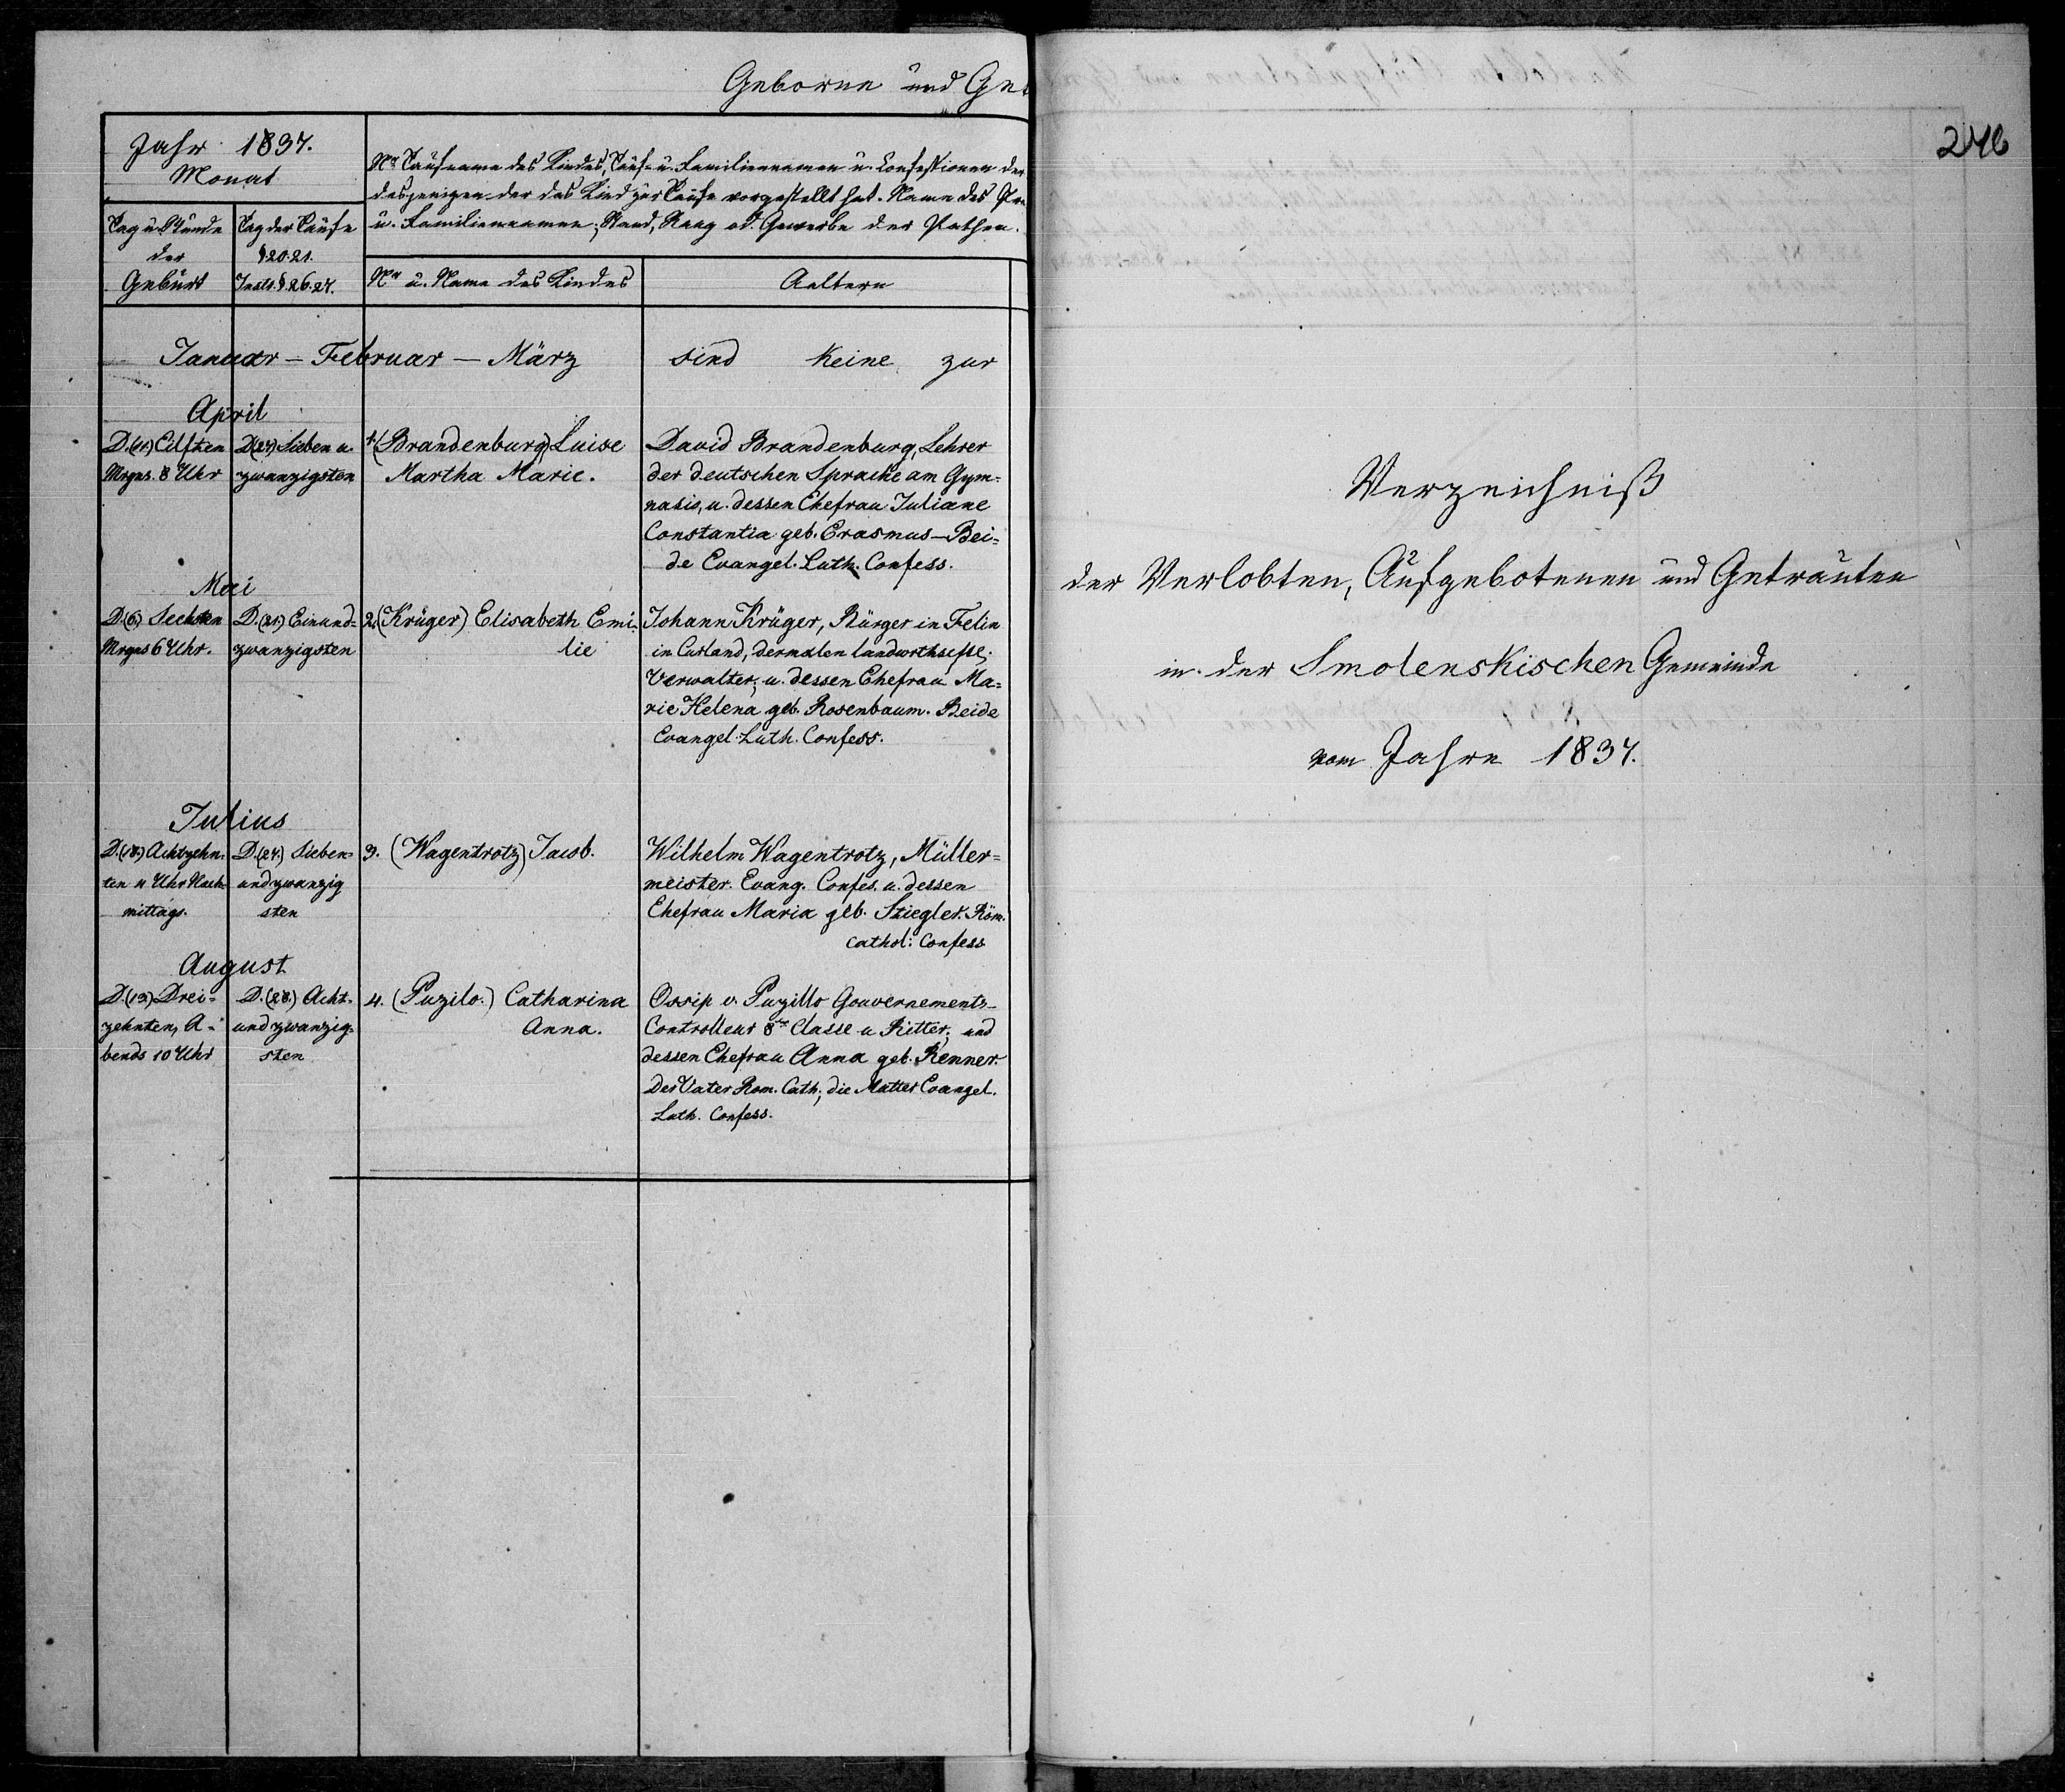 Geborne und Get
Jahr 1837.
Monat
Tag u. Stunde
der
Geburt
Tag der Taufe
§ 20. 21.
Instr. § 26. 27.
Nr Taufname des Kindes, Tauf- u. Familiennamen u. Confessionen der
desjenigen der das Kind zur Taufe vorgestellt hat. Name des Pre
u. Familiennamen, Stand, Rang od. Gewerbe der Pathen.
Nr u. Name des Kindes
Aeltern
Januar – Februar – März sind keine zur
April
D. (11.) Eilften
Mrgns. 8 Uhr
D. (27.) Sieben u.
zwanzigsten
1. (Brandenburg) Luise
Martha Marie.
David Brandenburg, Lehrer
der deutschen Sprache am Gym=
nasio, u. dessen Ehefrau Juliane
Constantia geb. Erasmus – Bei=
de Evangel. Luth. Confess.
Mai
D. (6.) Sechsten
Mrgns 6 Uhr.
D. (21.) Einund=
zwanzigsten
2. (Krüger) Elisabeth Emi=
lie
Johann Krüger, Bürger in Felin
in Curland, dermalen
Verwalter, u. dessen Ehefrau Ma=
rie Helena geb. Rosenbaum. Beide
Evangel. Luth. Confess.
Julius
D. (18.) Achtzehn=
ten 11 Uhr Nach=
mittags.
D. (27.) Sieben=
und zwanzig
sten
3. (Wagentrotz) Jacob.
Wilhelm Wagentrotz, Müller=
meister. Evang. Confes. u. dessen
Ehefrau Maria geb. Stiegler. Röm.
Cathol: Confess
August
D. (13.) Drei=
zehnten, A=
bends 10 Uhr
D. (28.) Acht=
und zwanzig=
sten
4. (Puzilo.) Catharina
Anna.
Ossip v. Puzillo Gouvernements-
Controlleur 8ter Classe u Ritter, und
dessen Ehefrau Anna geb. Renner.
Der Vater Rom. Cath; die Mutter Evangel.
Luth. Confess.
246
Verzeichniß
der Verlobten, Aufgebotenen und Getrauten
in der Smolenskischen Gemeinde
vom Jahre 1837.